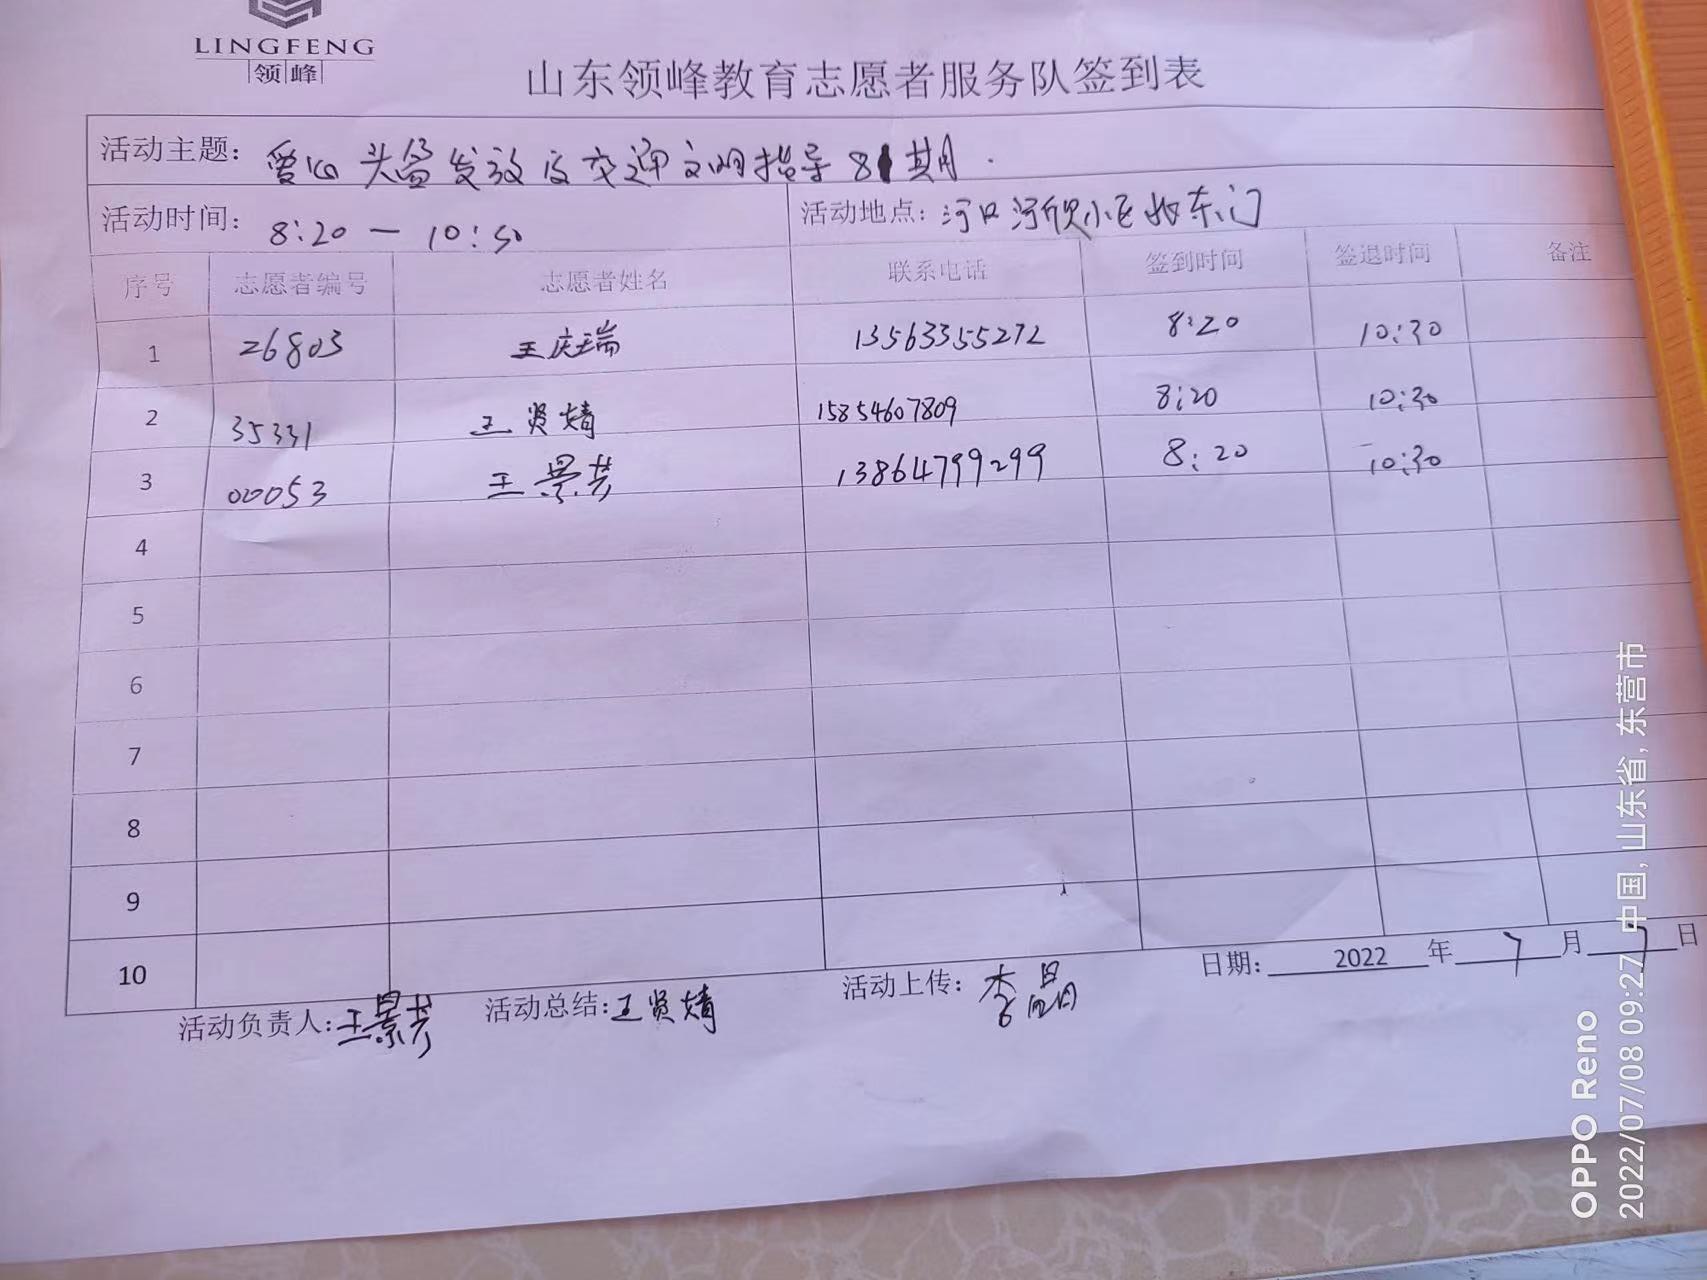 LINGFENG
领峰
山东领峰教育志愿者服务队签到表
活动主题: 爱心头盔发放及交通文明指导81期.
活动时间: 8:20 — 10:30 活动地点: 河口河欣小区北东门
序号 志愿者编号 志愿者姓名 联系电话 签到时间 签退时间 备注
1 26803 王庆瑞 13563355272 8:20 10:30
2 35331 王贤婧 15854607809 8:20 10:30
3 00053 王景芳 13864799299 8:20 10:30
4
5
6
7
8
9
10
活动负责人: 王景芳 活动总结: 王贤婧 活动上传: 李晶 日期: 2022 年 7 月 7 日
OPPO Reno
2022/07/08 09:27 中国, 山东省, 东营市